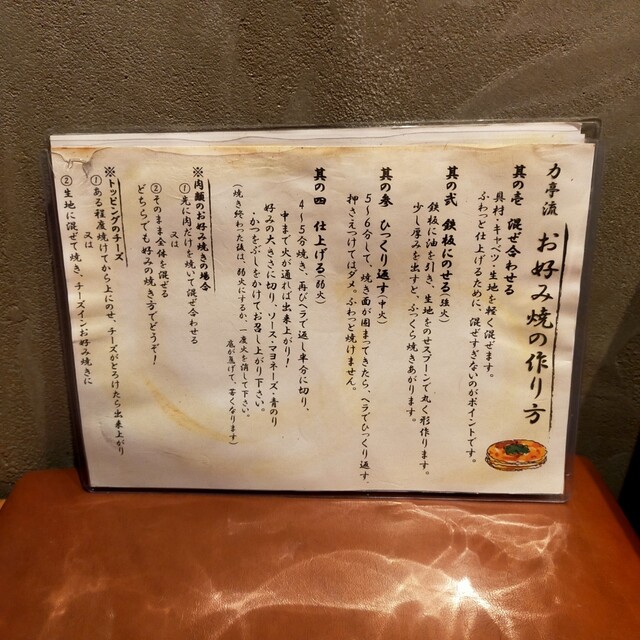 力亭流 お好み焼の作り方
其の壱 混ぜ合わせる
具材・キャベツ・生地を軽く混ぜます。
ふわっと仕上げるために、混ぜすぎないのがポイントです。
其の弐 鉄板にのせる(強火)
鉄板に油を引き、生地をのせスプーンで丸く形作ります。
少し厚みを出すと、ふっくら焼きあがります。
其の参 ひっくり返す(中火)
5～6分して、焼き面が固まってきたら、ヘラでひっくり返す。
押さえつけてはダメ。ふわっと焼けません。
其の四 仕上げる(弱火)
4～5分焼き、再びヘラで返し半分に切り、
中まで火が通れば出来上がり!
好みの大きさに切り、ソース・マヨネーズ・青のり
・かつをぶしをかけてお召し上がり下さい。
(焼き終わった後は、弱火にするか、一度火を消して下さい。
底が焦げて、苦くなります)
※肉類のお好み焼きの場合
①先に肉だけを焼いて混ぜ合わせる
又は
②そのまま全体を混ぜる
どちらでも好みの焼き方でどうぞ!
※トッピングのチーズ
①ある程度焼けてから上にのせ、チーズがとろけたら出来上がり
又は
②生地に混ぜて焼き、チーズインお好み焼きに